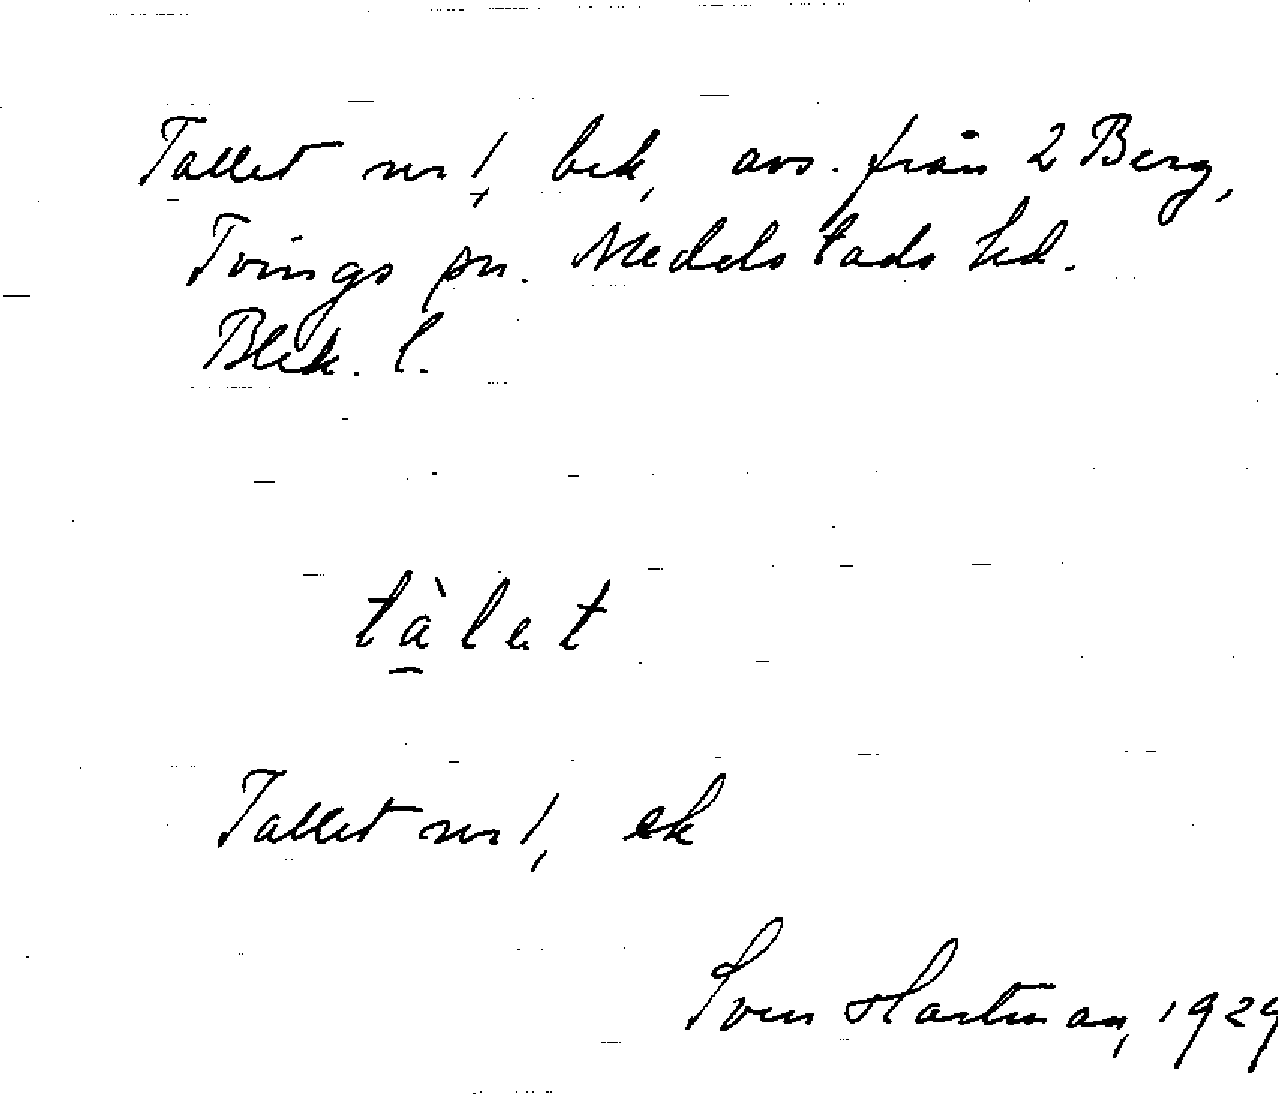 Tallet nr 1, bek, avs. från 2 Berg,
Tvings sn. Medelstads hd.
Blek. l.
tàlet
Tallet nr 1, ek
Sven Hartman, 1929